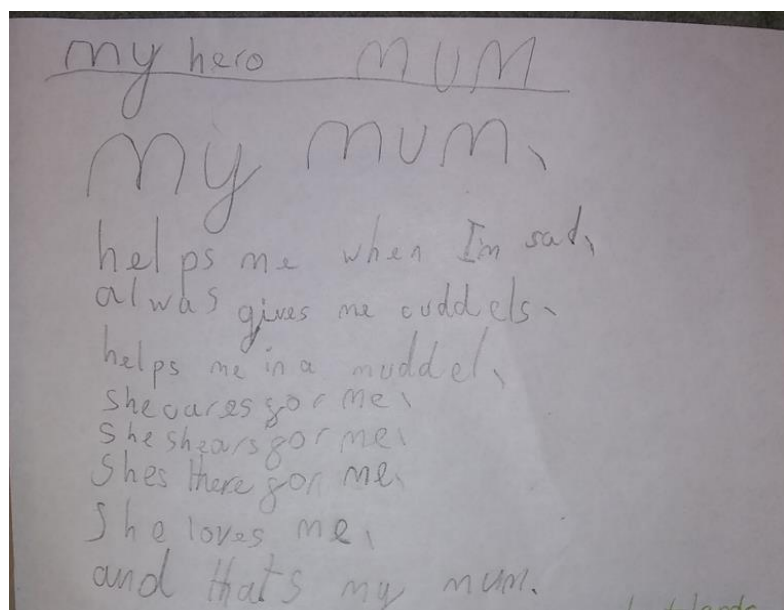 my hero MUM
My mum,
helps me when I'm sad,
alwas gives me cuddels,
helps me in a muddel,
she cares for me,
she shears for me,
shes there for me,
she loves me,
and that's my mum.